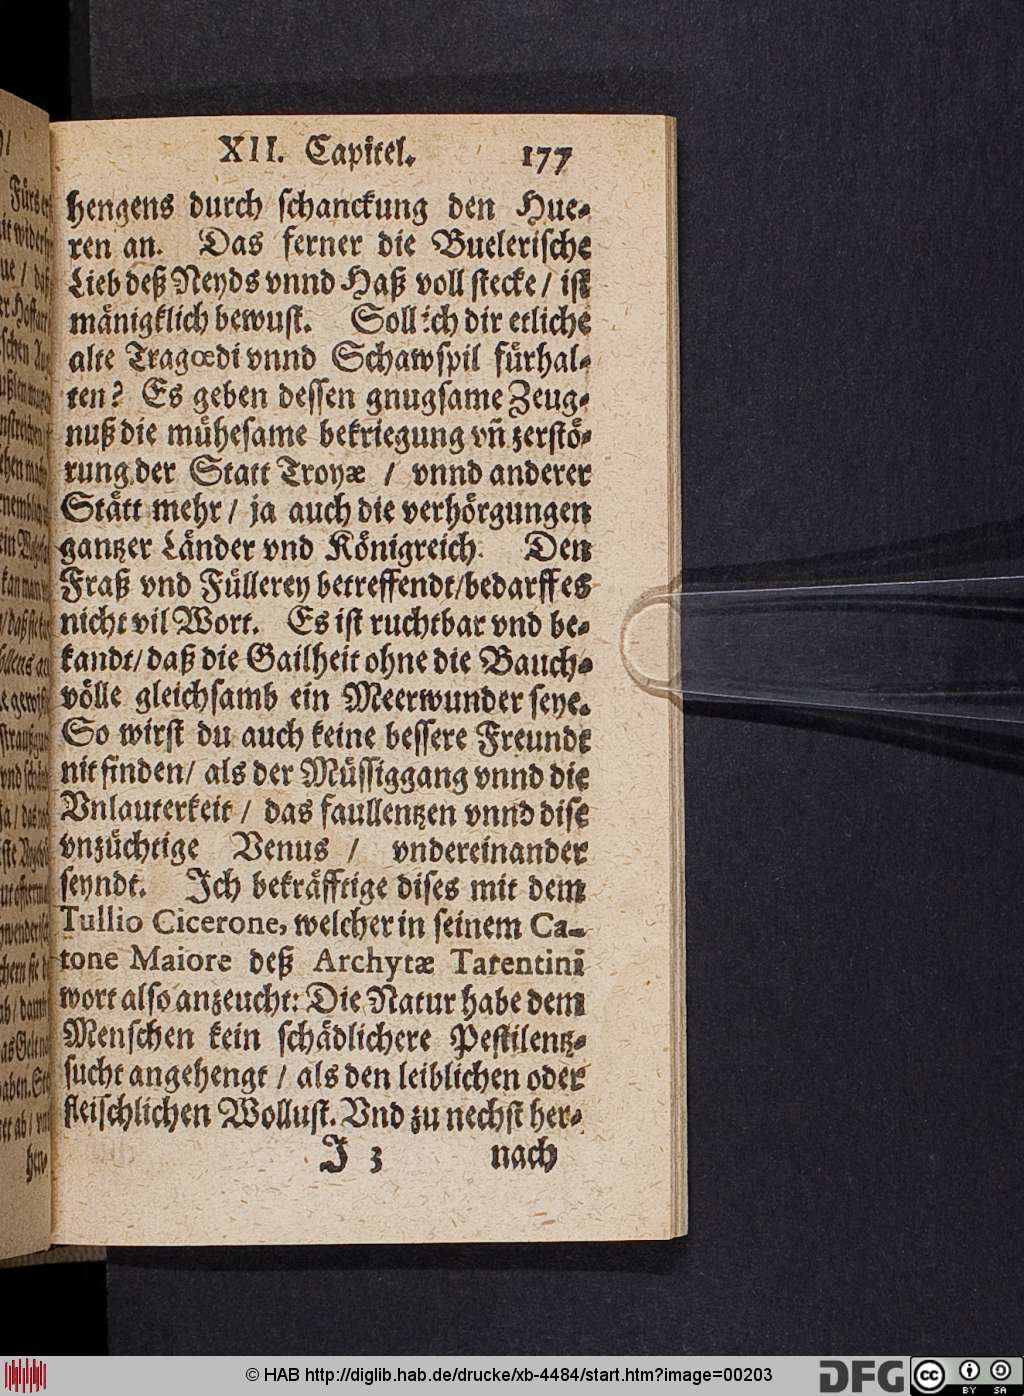 XII. Capitel. 177
hengens durch schanckung den Hue-
ren an. Das ferner die Buelerische
Lieb deß Neyds vnnd Haß voll stecke / ist
mänigklich bewust. Soll ich dir etliche
alte Tragœdi vnnd Schawspil fürhal-
ten? Es geben dessen gnugsame Zeug-
nuß die mühesame bekriegung vñ zerstö-
rung der Statt Troyæ / vnnd anderer
Stätt mehr / ja auch die verhörgungen
gantzer Länder vnd Königreich. Den
Fraß vnd Füllerey betreffendt/bedarff es
nicht vil Wort. Es ist ruchtbar vnd be-
kandt/ daß die Gailheit ohne die Bauch-
völle gleichsamb ein Meerwunder seye.
So wirst du auch keine bessere Freundt
nit finden/ als der Müssiggang vnnd die
Vnlauterkeit / das faullentzen vnnd dise
vnzüchtige Venus / vndereinander
seyndt. Ich bekräfftige dises mit dem
Tullio Cicerone, welcher in seinem Ca-
tone Maiore deß Archytæ Tarentini
wort also anzeucht: Die Natur habe dem
Menschen kein schädlichere Pestilentz-
sucht angehengt / als den leiblichen oder
fleischlichen Wollust. Vnd zu nechst her-
J 3 nach
© HAB http://diglib.hab.de/drucke/xb-4484/start.htm?image=00203
DFG
cc BY SA